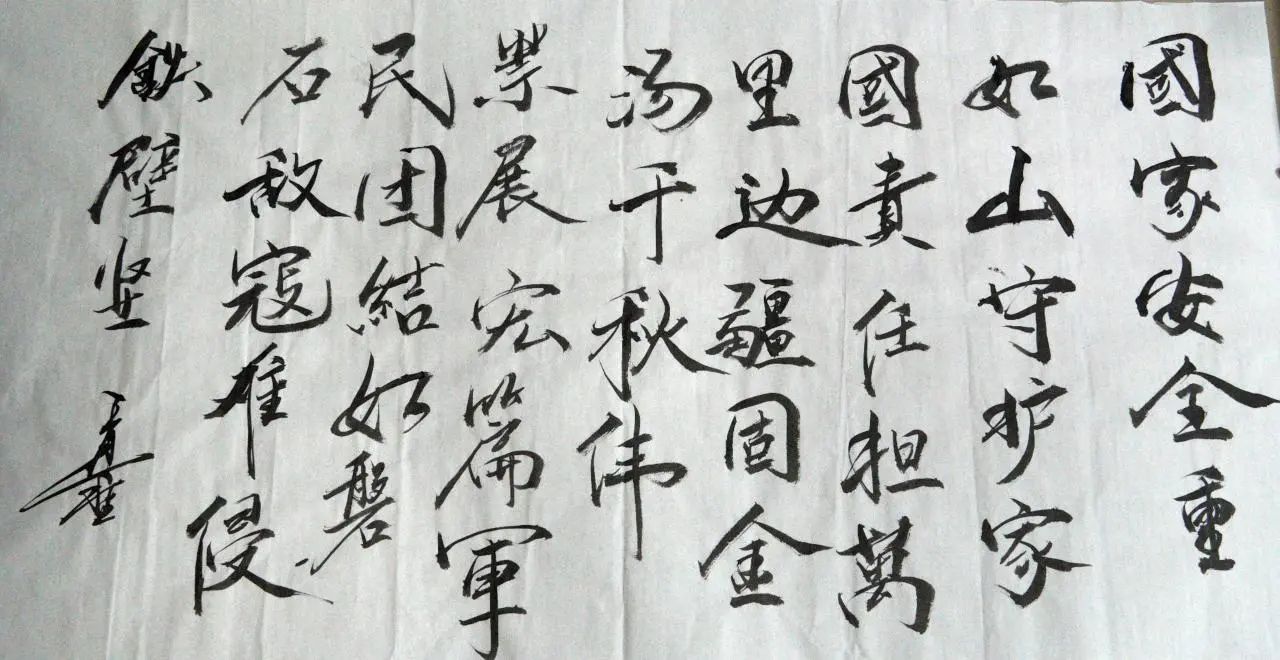 國家安全重
如山守护家
國責任担萬
里边疆固金
汤千秋伟
業展宏篇軍
民团結如磐
石敌寇难侵
鉄壁坚